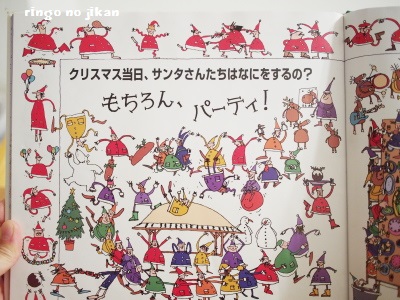 ringo no jikan
クリスマス当日、サンタさんたちはなにをするの?
もちろん、パーティ!